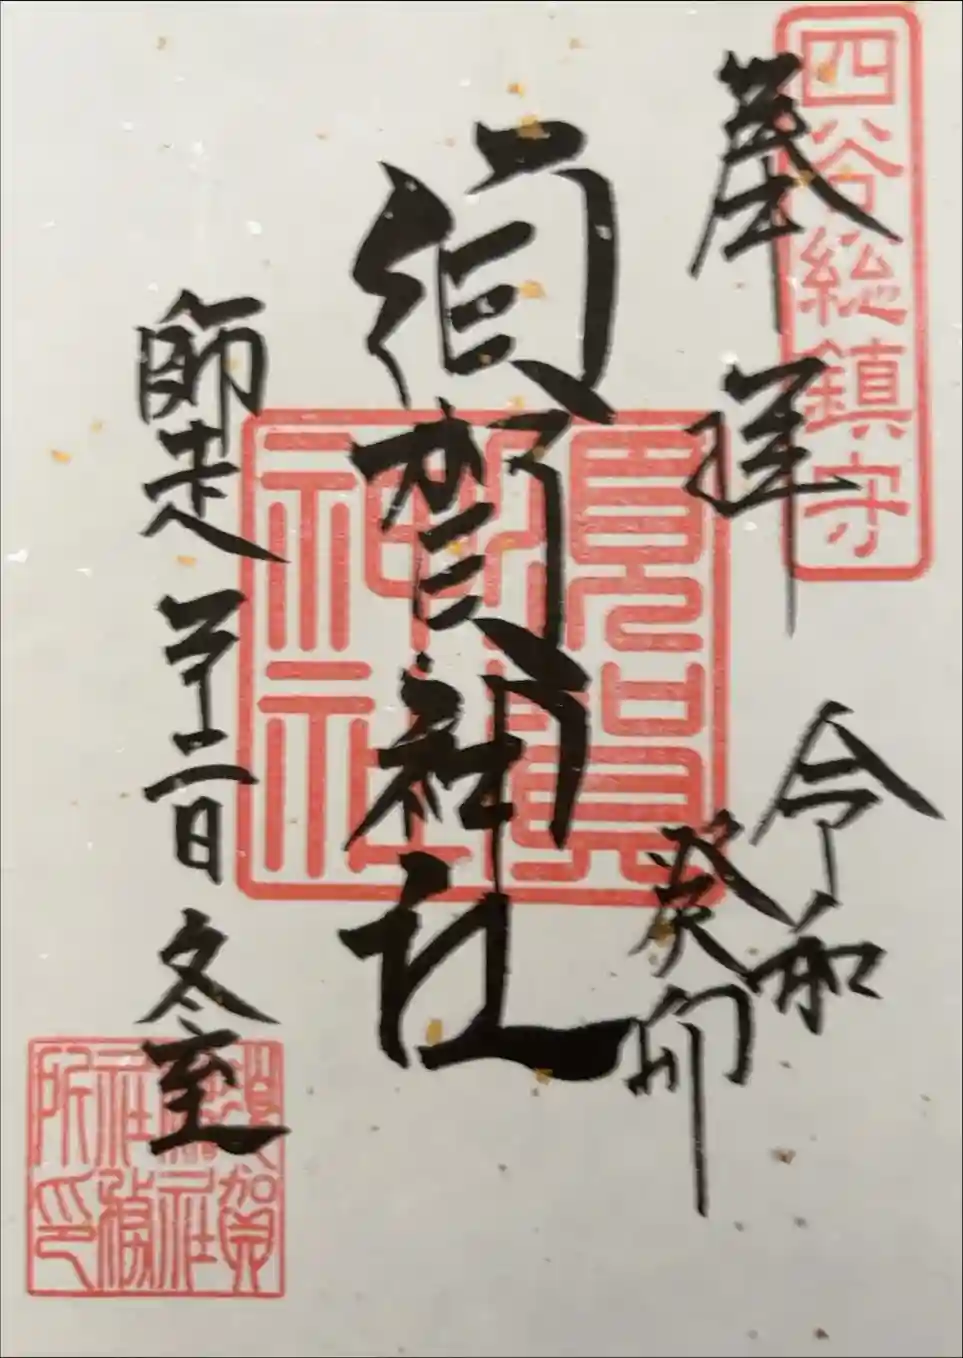 四谷総鎮守
奉拝
令和
癸卯
須賀神社
須賀神社
師走 廿二日 冬至
須賀神社社務所印